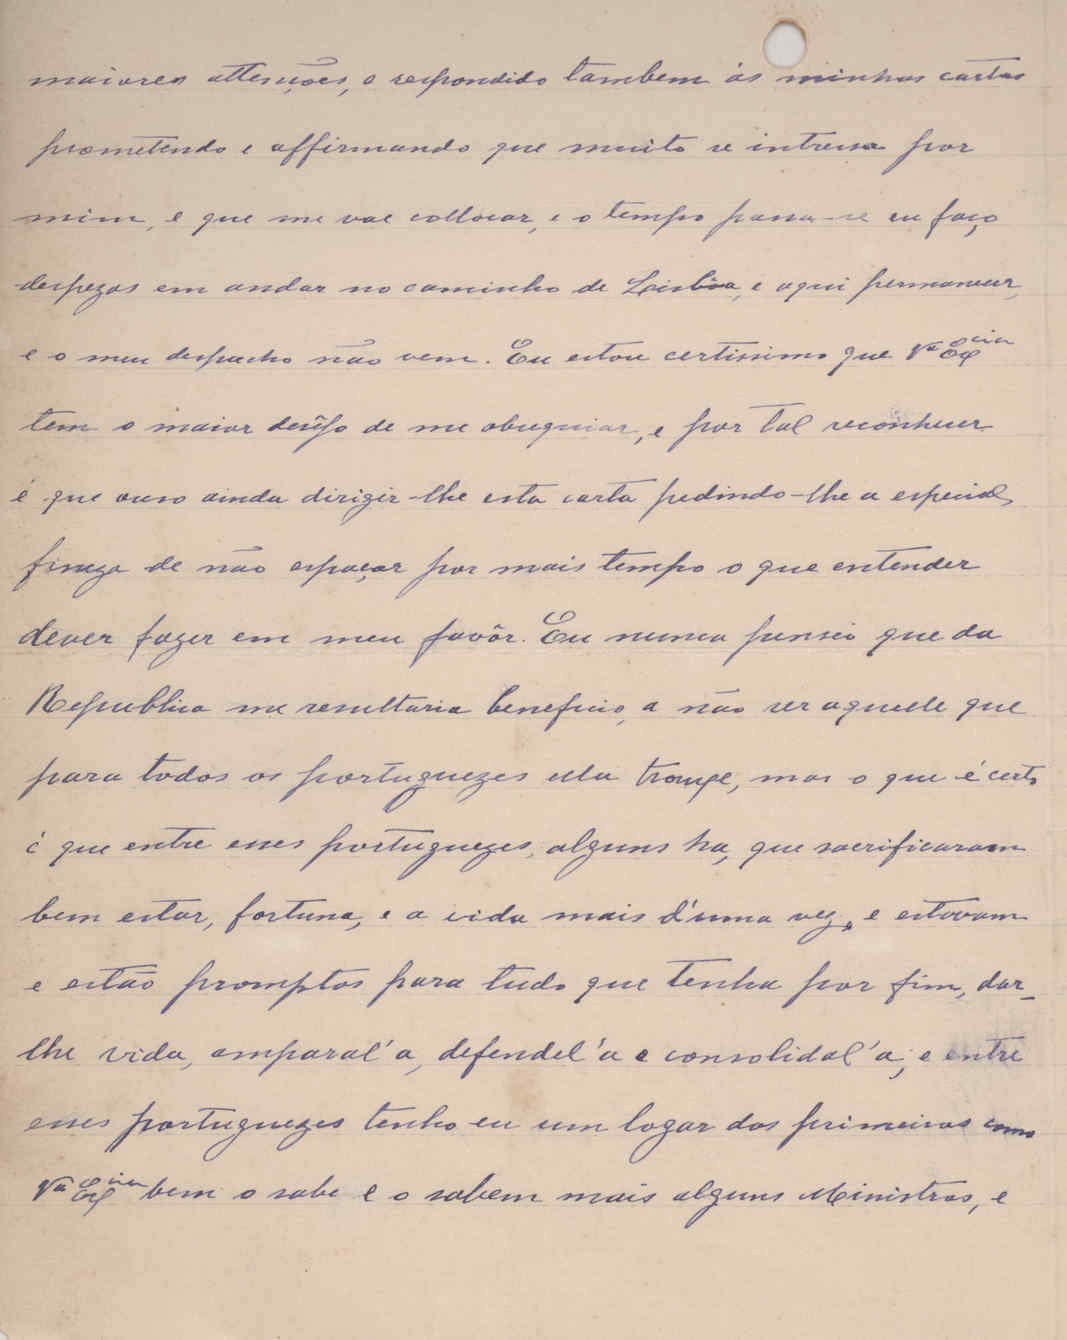 maiores attenções, e respondido tambem ás minhas cartas
prometendo e affirmando que muito se intressa por
mim, e que me vae collocar, e o tempo passa-se eu faço
despezas em andar no caminho de Lisbôa, e aqui permanecer,
e o meu despacho não vem. Eu estou certissimo que Vª Excia
tem o maior desejo de me obsequiar, e por tal reconhecer
é que ouso ainda dirigir-lhe esta carta pedindo-lhe a especial
fineza de não espaçar por mais tempo o que entender
dever fazer em meu favôr. Eu nunca pensei que da
Republica me resultaria beneficio, a não ser aquelle que
para todos os portuguezes ella trouxe, mas o que é certo
é que entre esses portuguezes, alguns ha, que sacrificaram
bem estar, fortuna, e a vida mais d'uma vez, e estavam
e estão promptos para tudo que tenha por fim, dar-
lhe vida, amparal'a, defendel'a e consolidal'a, e entre
esses portuguezes tenho eu um logar dos primeiros como
Vª Excia bem o sabe e o sabem mais alguns Ministros, e